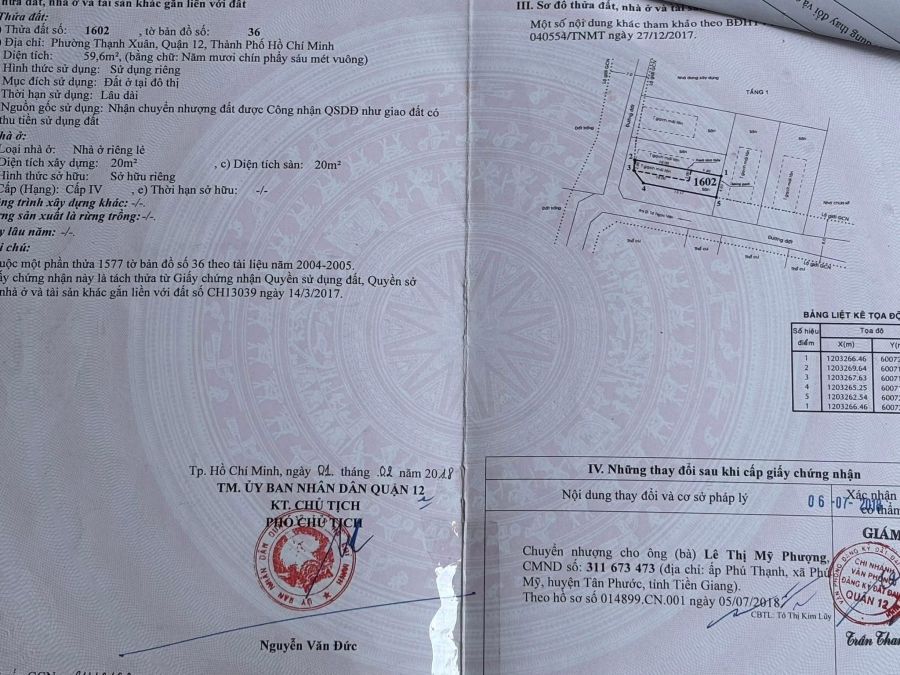 thửa đất, nhà ở và tài sản khác gắn liền với đất
Thửa đất:
Thửa đất số: 1602 , tờ bản đồ số: 36
Địa chỉ: Phường Thạnh Xuân, Quận 12, Thành Phố Hồ Chí Minh
Diện tích: 59,6m², (bằng chữ: Năm mươi chín phẩy sáu mét vuông)
Hình thức sử dụng: Sử dụng riêng
Mục đích sử dụng: Đất ở tại đô thị
Thời hạn sử dụng: Lâu dài
Nguồn gốc sử dụng: Nhận chuyển nhượng đất được Công nhận QSDĐ như giao đất có
thu tiền sử dụng đất
hà ở:
Loại nhà ở: Nhà ở riêng lẻ
Diện tích xây dựng: 20m² , c) Diện tích sàn: 20m²
Hình thức sở hữu: Sở hữu riêng
Cấp (Hạng): Cấp IV , e) Thời hạn sở hữu: -/-
ng trình xây dựng khác: -/-.
ng sản xuất là rừng trồng:-/-.
y lâu năm: -/-.
i chú:
uộc một phần thửa 1577 tờ bản đồ số 36 theo tài liệu năm 2004-2005.
ấy chứng nhận này là tách thửa từ Giấy chứng nhận Quyền sử dụng đất, Quyền sở
nhà ở và tài sản khác gắn liền với đất số CH13039 ngày 14/3/2017.
Tp. Hồ Chí Minh, ngày 01 tháng 02 năm 2018
TM. ỦY BAN NHÂN DÂN QUẬN 12
KT. CHỦ TỊCH
PHÓ CHỦ TỊCH
Nguyễn Văn Đức
III. Sơ đồ thửa đất, nhà ở và tài sản
Một số nội dung khác tham khảo theo BĐHT
040554/TNMT ngày 27/12/2017.
TẦNG 1
Nhà đang xây dựng
Lộ giới GCN
Đường đất
Đất trống
Sân
1 gạch mái tôn
1602
1
2
3
4
5
Đất trống
Đường đất
Thổ mộ
Thổ mộ
Thổ mộ
Thổ mộ
Lộ giới GCN
Lộ giới GCN
BẢNG LIỆT KÊ TỌA ĐỘ
Số hiệu điểm Tọa độ
X(m) Y(m
1 1203266.46 6007
2 1203269.64 6007
3 1203267.63 6007
4 1203265.25 6007
5 1203262.54 6007
1 1203266.46 6007
IV. Những thay đổi sau khi cấp giấy chứng nhận
Nội dung thay đổi và cơ sở pháp lý
Xác nhận
có thẩm
06 -07- 2018
Chuyển nhượng cho ông (bà) Lê Thị Mỹ Phượng,
CMND số: 311 673 473 (địa chỉ: ấp Phú Thạnh, xã Phú
Mỹ, huyện Tân Phước, tỉnh Tiền Giang).
Theo hồ sơ số 014899.CN.001 ngày 05/07/2018
CBTL: Tô Thị Kim Lũy
GIÁM
CHI NHÁNH
VĂN PHÒNG
ĐĂNG KÝ ĐẤT ĐAI
QUẬN 12
Trần Than